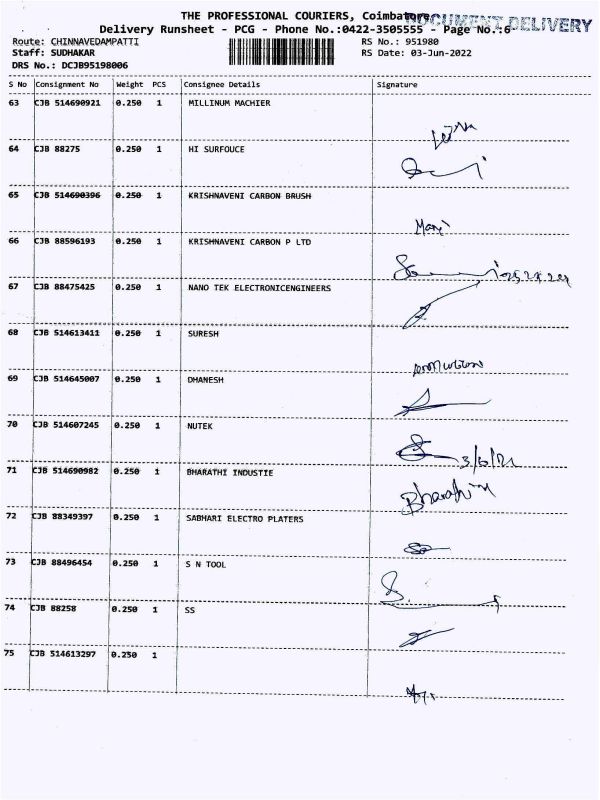 THE PROFESSIONAL COURIERS, Coimbatore
DOCUMENT DELIVERY
Delivery Runsheet - PCG - Phone No.:0422-3505555 - Page No.:6
Route: CHINNAVEDAMPATTI RS No.: 951980
Staff: SUDHAKAR RS Date: 03-Jun-2022
DRS No.: DCJB95198006
S No Consignment No Weight PCS Consignee Details Signature
63 CJB 514690921 0.250 1 MILLINUM MACHIER
64 CJB 88275 0.250 1 HI SURFOUCE
65 CJB 514690396 0.250 1 KRISHNAVENI CARBON BRUSH
Mani
66 CJB 88596193 0.250 1 KRISHNAVENI CARBON P LTD
67 CJB 88475425 0.250 1 NANO TEK ELECTRONICENGINEERS
68 CJB 514613411 0.250 1 SURESH
69 CJB 514645007 0.250 1 DHANESH
70 CJB 514607245 0.250 1 NUTEK
71 CJB 514690982 0.250 1 BHARATHI INDUSTIE
Bharathi
72 CJB 88349397 0.250 1 SABHARI ELECTRO PLATERS
73 CJB 88496454 0.250 1 S N TOOL
74 CJB 88258 0.250 1 SS
75 CJB 514613297 0.250 1